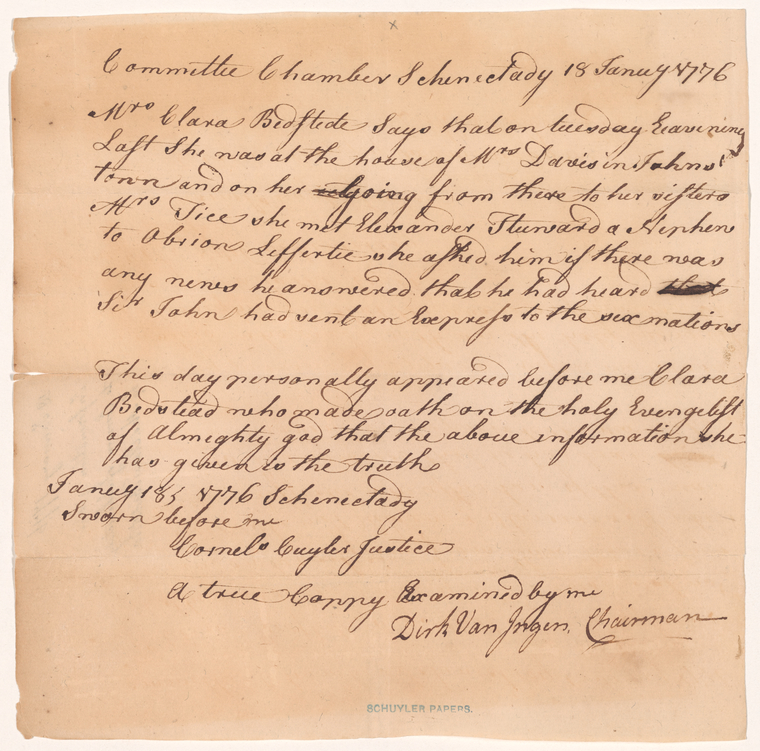 Committee Chamber Schenectady 18 Janury 1776
Mrs Clara Bedstede Says that on tuesday Eavening
Last She was at the house of Mrs Davis in Johns
town and on her going from there to her sisters
Mrs Tice she met Elexander Stuward a Nephew
to Obrion Leffertie she asked him if there was
any news he answered that he had heard that
Sir John had sent an Express to the six nations
This day personally appeared before me Clara
Bedstead who made oath on the holy Evengelist
of Almighty god that the above information she
has given is the truth
Janury 18 1776 Schenectady
Sworn before me
Cornels Cuyler Justice
A true Coppy Examined by me
Dirk Van Ingen Chairman
SCHUYLER PAPERS.